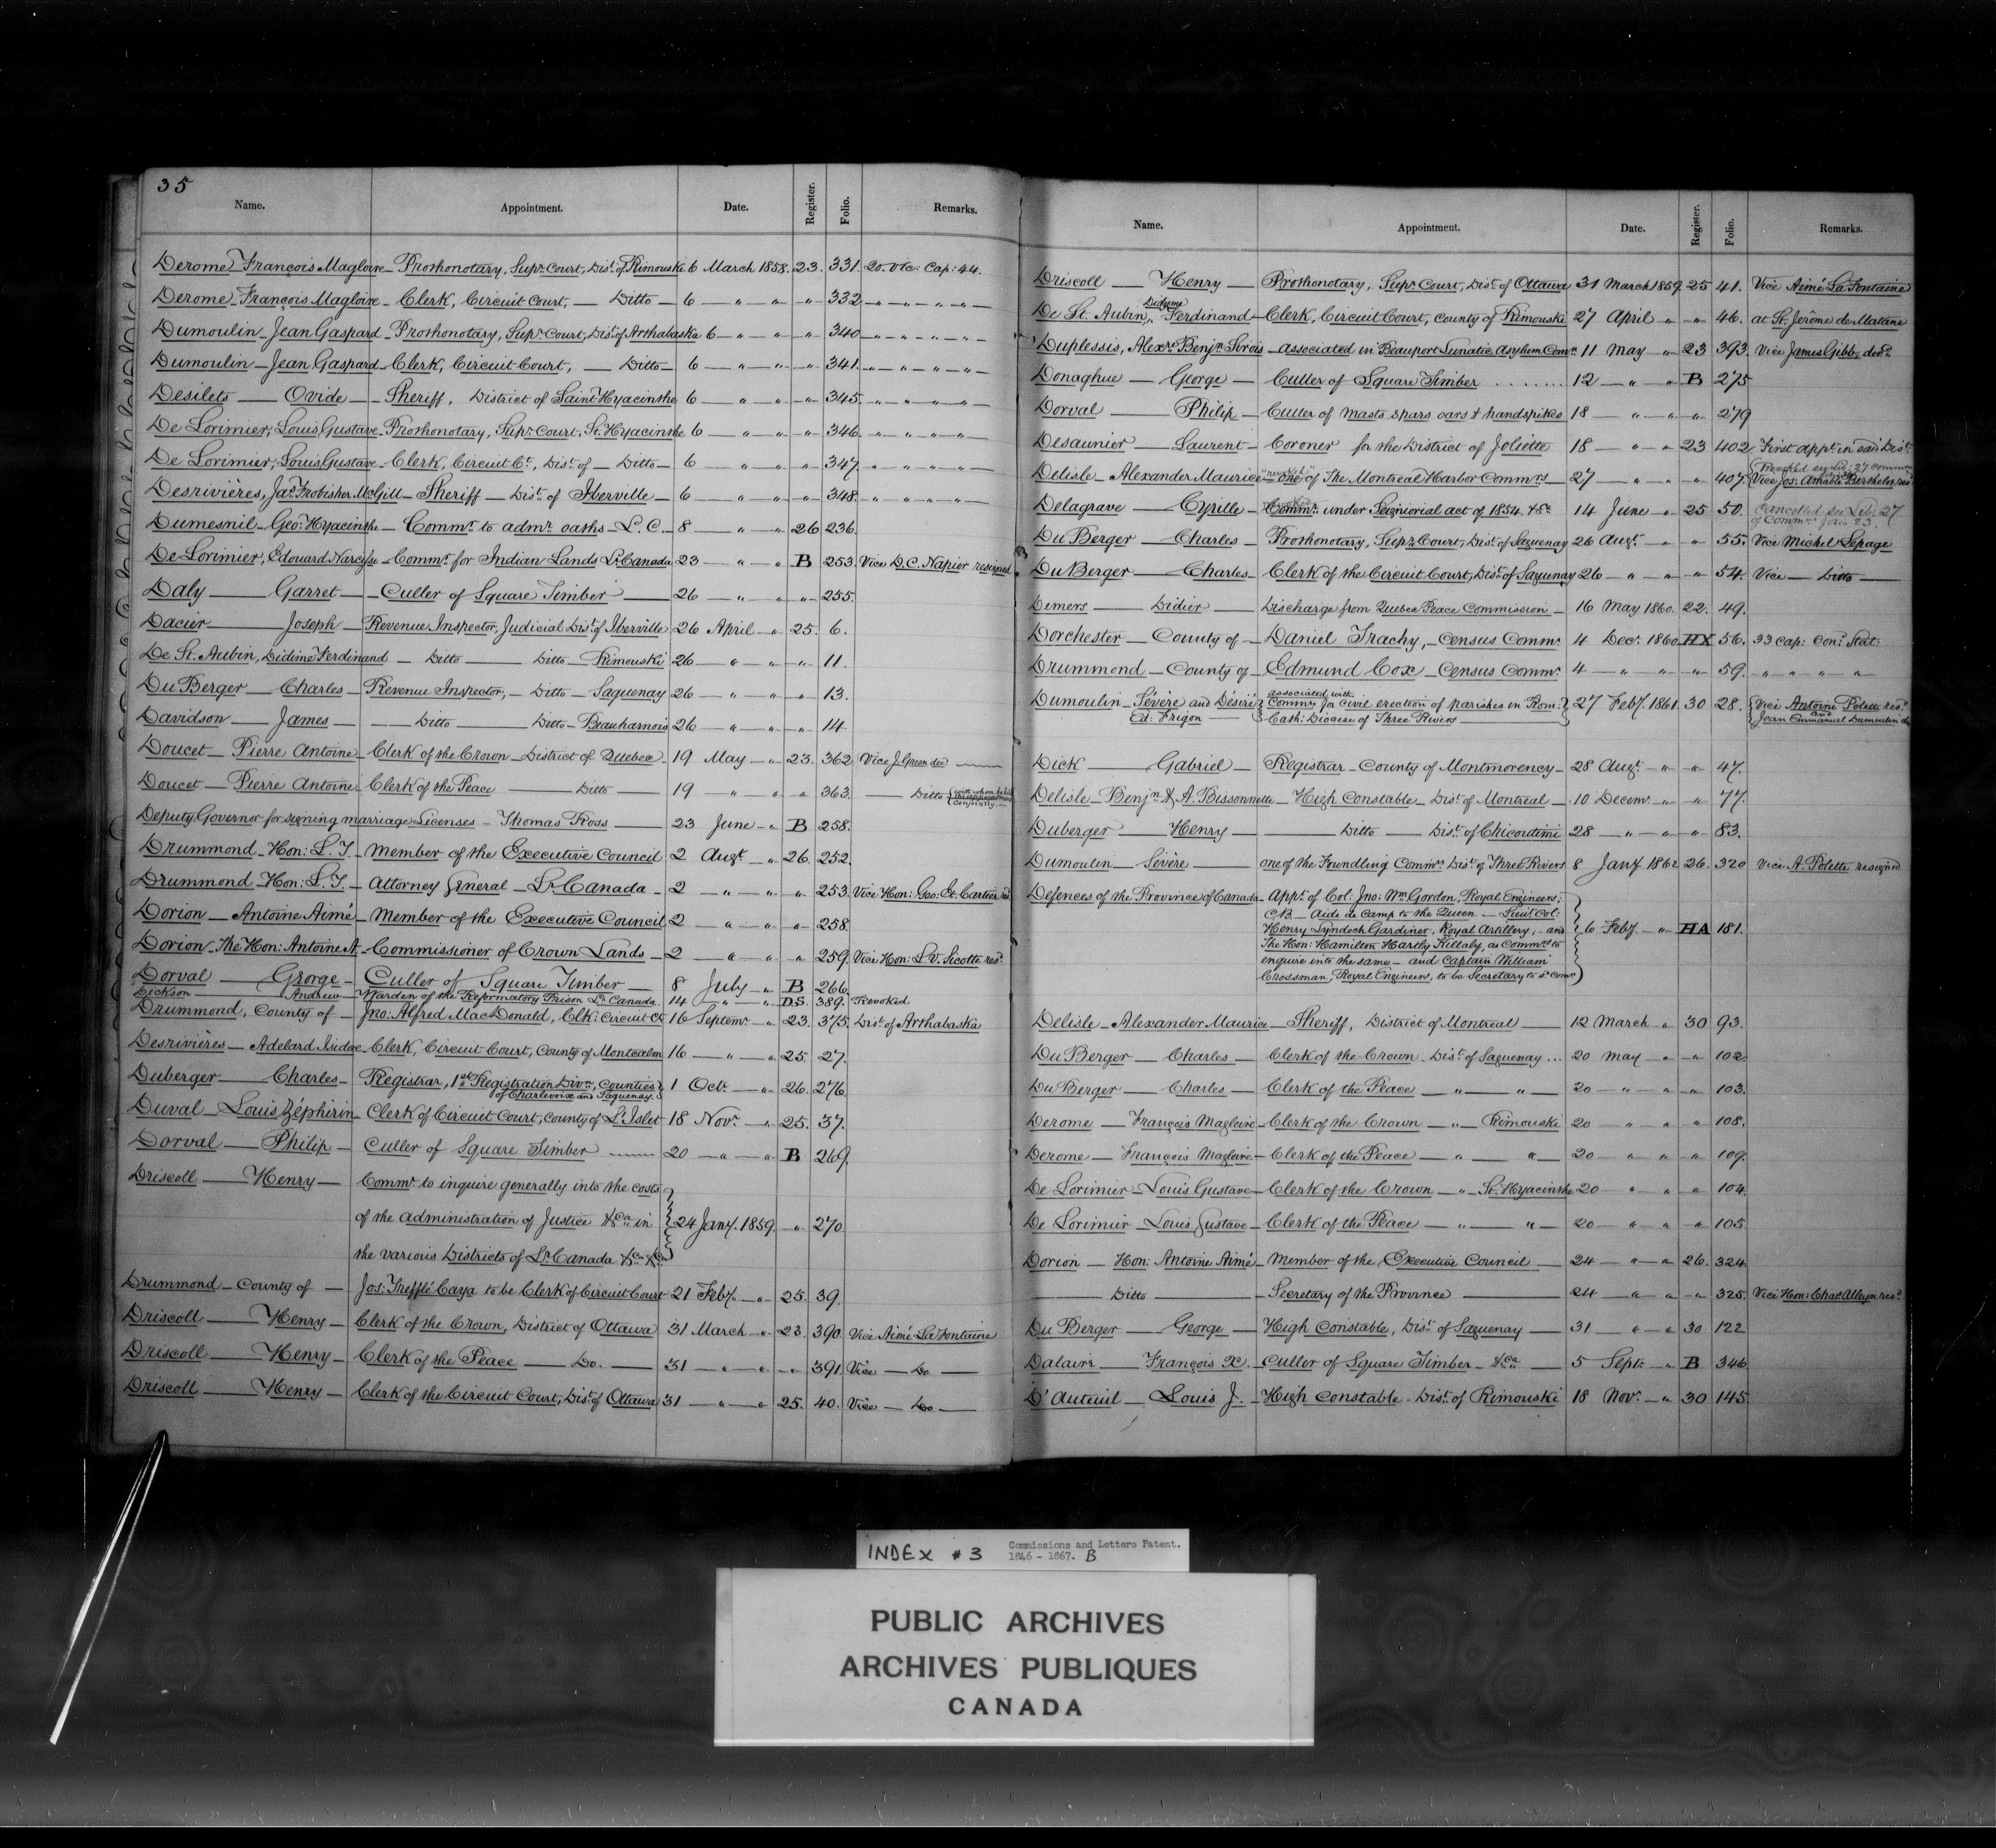 35
Name. Appointment. Date. Register. Folio. Remarks.
Derome, François Magloire — Prothonotary, Supr. Court, Dist. of Rimouski 6 March 1858. 23. 331. 20. Vic: Cap: 44.
Derome — François Magloire — Clerk, Circuit Court, — Ditto — 6 — " — " — " — 332. — " — " — " — " —
Dumoulin — Jean Gaspard — Prothonotary, Supr. Court, Dist. of Arthabaska 6 — " — " — " — 340 — " — " — " — " —
Dumoulin — Jean Gaspard — Clerk, Circuit Court, — Ditto — 6 — " — " — " — 341. — " — " — " — " —
Desilets — Ovide — Sheriff, District of Saint Hyacinthe 6 — " — " — " — 345. — " — " — " — " —
De Lorimier, Louis Gustave — Prothonotary, Supr. Court, St. Hyacinthe 6 — " — " — " — 346. — " — " — " — " —
De Lorimier, Louis Gustave — Clerk, Circuit Ct., Dist. of — Ditto — 6 — " — " — " — 347. — " — " — " — " —
Desrivières, Jas. Frobisher McGill — Sheriff — Dist. of Iberville — 6 — " — " — " — 348. — " — " — " — " —
Dumesnil — Geo: Hyacinthe — Commr. to admr. oaths — L. C. 8 — " — " 26 236.
De Lorimier, Edouard Narcisse — Commr. for Indian Lands Lr. Canada 23 — " — " B 253. Vice D. C. Napier resigned
Daly — Garret — Culler of Square Timber — 26 — " — " — " — 255.
Dacier — Joseph — Revenue Inspector, Judicial Dist. of Iberville 26 April — " 25. 6.
De St. Aubin, Didime Ferdinand — Ditto — Ditto — Rimouski 26 — " — " — " — 11.
Du Berger — Charles — Revenue Inspector, — Ditto — Saguenay 26 — " — " — " — 13.
Davidson — James — Ditto — Ditto — Beauharnois 26 — " — " — " — 14
Doucet — Pierre Antoine — Clerk of the Crown — District of Quebec — 19 May — " — 23. 362. Vice J. Green decd
Doucet — Pierre Antoine — Clerk of the Peace — Ditto — 19 — " — " — " 363. — Ditto {with whom he held the appointment conjointly.
Deputy Governor for signing marriage Licenses — Thomas Ross — 23 June — " B 258.
Drummond — Hon: L. T. — Member of the Executive Council 2 Augt. — " 26. 252.
Drummond — Hon: L. T. — Attorney General — Lr. Canada — 2 — " — " — " 253. Vice Hon: Geo. Et. Cartier resd.
Dorion — Antoine Aimé — Member of the Executive Council 2 — " — " — " 258.
Dorion — The Hon: Antoine A. — Commissioner of Crown Lands — 2 — " — " — " 259. Vice Hon: L. V. Sicotte resd.
Dorval — George — Culler of Square Timber — 8 July — " B 266.
Dickson — Andrew — Warden of the Reformatory Prison Lr. Canada. 14 — " — " D.S. 389. Revoked
Drummond, County of — Jno: Alfred MacDonald, Clk: Circuit Ct. 16 Septemr. — " 23. 375. Dist. of Arthabaska
Desrivières — Adelard Isidore — Clerk, Circuit Court, County of Montcalm 16 — " — " 25. 27.
Duberger — Charles — Registrar, 1st Registration Divn., Counties of Charlevoix and Saguenay.} 1 Octr. — " 26. 276.
Duval — Louis Zéphirin — Clerk of Circuit Court, County of L'Islet — 18 Novr. — " 25. 37.
Dorval — Philip — Culler of Square Timber — 20 — " — " B 269.
Driscoll — Henry — Commr. to inquire generally into the costs
of the administration of Justice &ca. in } 24 Jany. 1859. — " — 270
the various Districts of Lr. Canada &ca &ca
Drummond — County of — Jos: Trefflé Caya to be Clerk of Circuit Court 21 Feby. — " 25. 39.
Driscoll — Henry — Clerk of the Crown, District of Ottawa 31 March — " 23. 390. Vice Aimé LaFontaine
Driscoll — Henry — Clerk of the Peace — Do. — 31 — " — " — " 391. Vice — Do —
Driscoll — Henry — Clerk of the Circuit Court, Dist. of Ottawa 31 — " — " 25. 40. Vice — Do —
Name. Appointment. Date. Register. Folio. Remarks.
Driscoll — Henry — Prothonotary, Supr. Court, Dist. of Ottawa 31 March 1859. 25 41. Vice Aimé LaFontaine
De St. Aubin, Didyme Ferdinand — Clerk, Circuit Court, County of Rimouski 27 April — " — " 46. at St. Jérôme de Matane
Duplessis, Alexre. Benjn. Sirois — associated in Beauport Lunatic Asylum Commn. 11 May — " 23 393. Vice James Gibb, decd.
Donaghue — George — Culler of Square Timber ........ 12 — " — " B 275
Dorval — Philip — Culler of masts spars oars & handspikes 18 — " — " — " 279
Desaunier — Laurent — Coroner for the District of Joliette 18 — " — " 23 402 First appt. in said Dist.
Delisle — Alexander Maurice — "revoked" one of The Montreal Harbor Commrs. — 27 — " — " — " 407. Vice Jos: Amable Berthelot resd.
Delagrave — Cyrille — Commr. under Seigniorial act of 1854. &ca. 14 June — " 25 50. Cancelled see Lib: 27 of Commns. folio 23.
Du Berger — Charles — Prothonotary, Supr. Court, Dist. of Saguenay 26 Augt. — " — " 55. Vice Michel Lepage
Du Berger — Charles — Clerk of the Circuit Court, Dist. of Saguenay 26 — " — " — " 54. Vice — Ditto —
Demers — Didier — Discharge from Quebec Peace Commission — 16 May 1860. 22. 49.
Dorchester — County of — Daniel Trachy, — Census Commr. 4 Decr. 1860 HX 56. 33 Cap: Con: Stat:
Drummond — County of — Edmund Cox — Census Commr. 4 — " — " — " 59. " " " "
Dumoulin — Sévère and Désiré Ed. Frigon — } associated with Commrs. for civil erection of parishes in Rom: Cath: Diocese of Three Rivers — } 27 Feby. 1861. 30 28. {Vice Antoine Polette resd. and Jean Emmanuel Dumoulin do
Dick — Gabriel — Registrar — County of Montmorency — 28 Augt. — " — " 47.
Delisle — Benjn. & A. Bissonnette — High Constable — Dist. of Montreal — 10 Decemr. — " — " 77.
Duberger — Henry — Ditto — Dist. of Chicoutimi 28 — " — " — " 83.
Dumoulin — Sévère — one of the Foundling Commrs. Dist. of Three Rivers 8 Jany. 1862 26. 320 Vice A. Polette resigned
Defences of the Province of Canada — Appt. of Col: Jno: Wm. Gordon, Royal Engineers;
C.B. — Aide de Camp to the Queen — Lieut. Col:
Henry Lyndoch Gardiner, Royal Artillery, — and } 6 Feby. — " HA 181.
The Hon: Hamilton Hartly Killaly, as Commrs. to
enquire into the same — and Captain William
Crossman, Royal Engineers, to be Secretary to sd. Comn.
Delisle — Alexander Maurice — Sheriff, District of Montreal — 12 March — " 30 93.
Du Berger — Charles — Clerk of the Crown — Dist. of Saguenay ... 20 May — " — " 102.
Du Berger — Charles — Clerk of the Peace — " — " — 20 — " — " — " 103.
Derome — François Magloire — Clerk of the Crown — " — Rimouski 20 — " — " — " 108.
Derome — François Magloire — Clerk of the Peace — " — " — 20 — " — " — " 109.
De Lorimier — Louis Gustave — Clerk of the Crown — " — St. Hyacinthe 20 — " — " — " 104.
De Lorimier — Louis Gustave — Clerk of the Peace — " — " — 20 — " — " — " 105
Dorion — Hon: Antoine Aimé — Member of the Executive Council — 24 — " — " 26. 324.
— Ditto — Secretary of the Province — 24 — " — " — " 325. Vice Hon: Chas Alleyn resd.
Du Berger — George — High Constable, Dist. of Saguenay — 31 " — " 30 122
Dalaire — François X. — Culler of Square Timber — &ca — 5 Sept. — " B 346
D'Auteuil — Louis J. — High Constable — Dist. of Rimouski 18 Novr. — " 30 145
INDEX #3 Commissions and Letters Patent.
1846 - 1867. B
PUBLIC ARCHIVES
ARCHIVES PUBLIQUES
CANADA